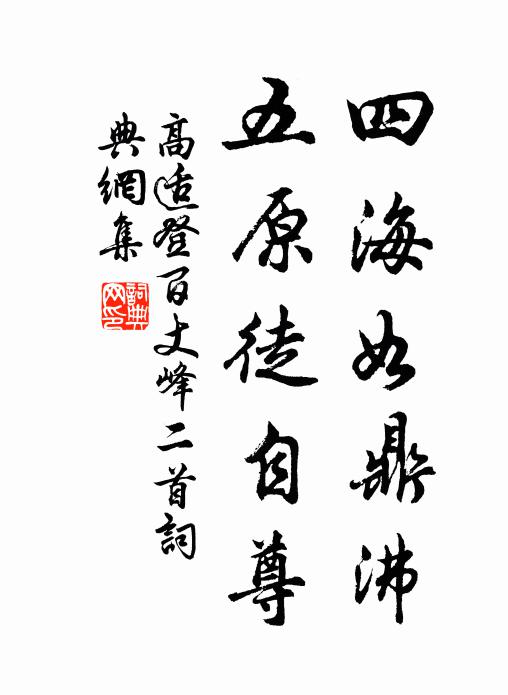 四海如鼎沸
五原徒自尊
高适登百丈峰二首詞
典網集
詞典
网印